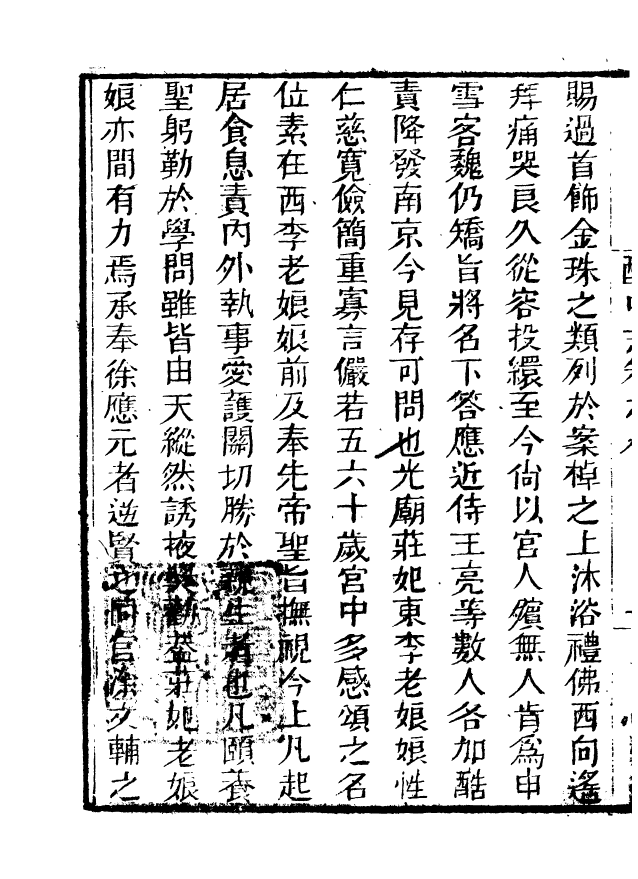 賜過首飾金珠之類列於案棹之上沐浴禮佛西向遙
拜痛哭良久從容投繯至今尙以宮人殯無人肯爲申
雪客魏仍矯旨將名下答應近侍王亮等數人各加酷
責降發南京今見存可問也光廟莊妃東李老娘娘性
仁慈寬儉簡重寡言儼若五六十歲宮中多感頌之名
位素在西李老娘娘前及奉先帝聖旨撫視今上凡起
居食息責內外執事愛護關切勝於親生者也凡頤養
聖躬勤於學問雖皆由天縱然誘掖奬勸葢莊妃老娘
娘亦間有力焉承奉徐應元者逆賢之同官涂文輔之